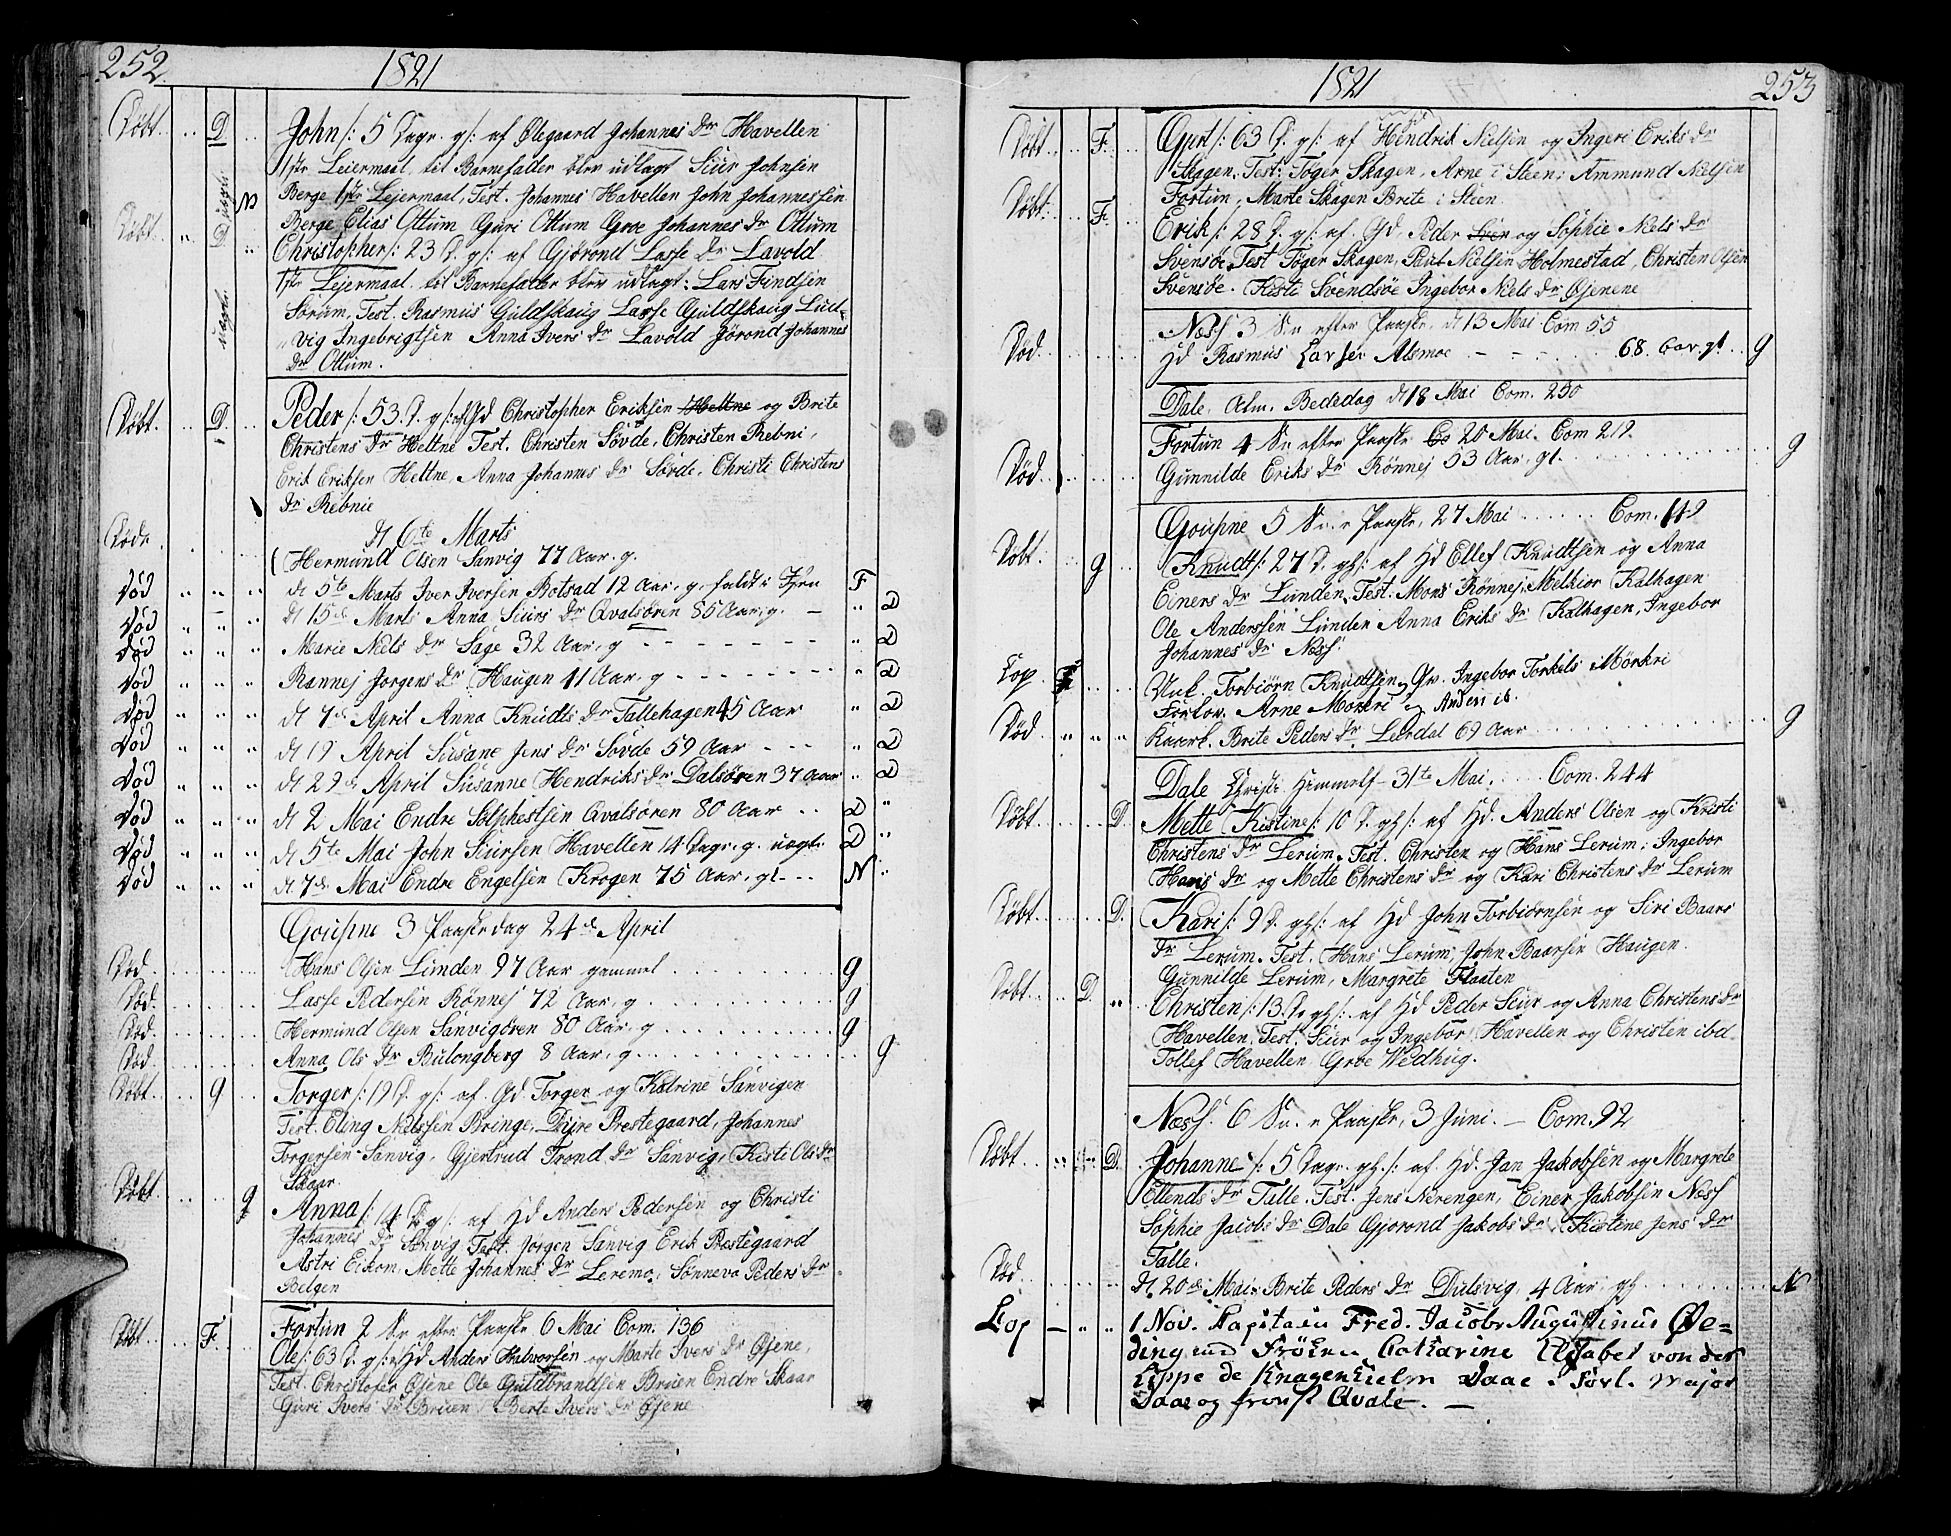 252
1821
Døbt D John /: 5 Dage g/: af Ølegaard Johannes Dr Havellen
1ste Leiermaal til Barnefader blev udlagt Siur Johnsen
Berge 1ste Lejermaal, Test. Johannes Havellen John Johannessen
Berge Elias Ottum Guri Ottum Groe Johannes Dr Ottum
Døbt D Christopher /: 23 D. g/: af Gjørond Lasse Dr Lavold
1ste Lejermaal til Barnefader blev udlagt: Lars Findsen
Sørum, Test. Rasmus Guldskaug Lasse Guldskaug Lud-
vig Ingebrigtsen Anna Ivers Dr Lavold Jørond Johannes
Dr Ottum.
Døbt. D. Peder /: 53. D. g/: af Gd Christopher Eriksen Heltne og Brite
Christens Dr Heltne Test. Christen Søvde, Christen Rebni,
Erik Eriksen Heltne, Anna Johannes Dr Søvde, Christi Christens
Dr Rebnie
d 6te Marts
Døde Hermund Olsen Sanvig 77 Aar. g.
Død d 5te Marts Iver Iversen Botsad 12 Aar. g. F
Død d 15de Marts Anna Siurs Dr Qvalsøren 85 Aar. g. D
Død Marie Niels Dr Sage 32 Aar. g D
Død Rannej Jørgens Dr Haugen 11 Aar. g D
Død d 7de April Anna Knudts Dr Tallehagen 45 Aar D
Død d 19 April Susane Jens Dr Søvde 59 Aar D
Død d 29de April Susanne Hendriks Dr Dalsøren 37 Aar D
Død d 2 Mai Endre Solphestsen Qvalsøren 80 Aar D
Død d 5te Mai John Siursen Havellen 14 Dage. g. uægte D
Død d 7de Mai Endre Engelsen Krogen 75 Aar. gl N
Goupne 3 Paaskedag 24de April
Død. Hans Olsen Lunden 97 Aar gammel g
Død. Lasse Pedersen Rønnej 72 Aar. g g
Død. Hermund Olsen Sanvigøren 80 Aar. g g
Død Anna Ols Dr Bulongberg 8 Aar. g g
Døbt. g Torger /: 19 D. g/: af Gd Torger og Katrine Sanvigen
Test. Eling Nielssen Bringe, Prestegaard, Johannes
Torgersen Sanvig, Gjertrud Trond Dr Sanvig, Kisti Ols Dr
Skaar
Døbt g Anna /: 14 D g/: af Hd Anders Pedersen og Christi
Johannes Dr Sanvig Test. Jørgen Sanvig Erik Prestegaard
Astri Eikom. Mette Johannes Dr Leremo, Sønneva Peders Dr
Bolgen
Fortun 2 Sø efter Paaske 6 Mai Com. 136
Døbt F. Ole /: 63 D. g/: af Hd Anders Halvorsen og Marte Ivers Dr Øjene,
Test. Christofer Øjene Ole Guldbrandsen Bruen Endre Skaar
Guri Ivers Dr Bruen, Berte Ivers Dr Øjene
1821
253
Døbt F. Gurt /: 63 D. g/: af Hendrik Nielsen og Ingeri Eriks Dr
Skagen. Test: Tøger Skagen, Arne i Steen, Ammund Nielsen
Fortun, Marte Skagen Brite i Steen
Døbt F. Erik /: 28 D. g/: af. Gd. Peder og Sophie Niels Dr
Svensøe Test Tøger Skagen, Paul Nielsen Holmestad, Christen Olsen
Svensøe. Kisti Svendsøe Ingebor Niels Dr Øjenene
Næss 3 Sø. efter Paaske, d 13 Mai Com 55
Død. Hd Rasmus Larsen Alsmoe 68. Aar. gl g
Dale, Alm. Bededag d 18 Mai Com. 250
Fortun 4 Sø efter Paaske 20 Mai. Com 212.
Død Gunnilde Eriks Dr Rønnej 53 Aar. gl. g
Goupne 5 Sø. e Paaske. 27 Mai Com. 149
Døbt g Knudt /: 27 D. g/: af Hd Ellef Knudtsen og Anna
Einers Dr Lunden, Test: Mons Rønnej, Melkior Kalhagen
Ole Anderssen Lunden Anna Eriks Dr Kalhagen, Ingebor
Johannes Dr Næss.
Cop Unk. Torbiørn Knudtsen, Gv. Ingebor Torkels i Mørkri
Forlov. Arne Mørkri
Død Brite Peders Dr Lerdal 69 Aar g
Dale Christi Himmelf 31te Mai. Com. 244
Døbt D. Mette Kistine /: 10 D. g/: af Hd. Anders Olsen og Kristi
Christens Dr Lerum, Test. Christen og Hans Lerum, Ingebor
Hans Dr og Mette Christens Dr og Kari Christens Dr Lerum
Døbt D. Kari /: 9 D. g/: af Hd John Torbiørnsen og Siri Baars
Dr Lerum, Test. Hans Lerum, John Baarsen Haugen
Gunnilde Lerum, Margrete Flaaten
Døbt D. Christen /: 13. D. g/: af Hd Peder Siur og Anna Christens Dr
Havellen, Test. Siur og Ingebor Havellen og Christen ibd
Tollef Havellen Groe Wedhug.
Næss 6 Sø. e Paaske, 3 Juni. Com. 92
Døbt D. Johanne /: 5 Dage. g/: af. Hd. Jan Jakobsen og Margrete
Ellends Dr Talle. Test: Jens Nerengen, Einer Jakobsen Næss
Sophie Jacobs Dr Dale Gjørond Jakobs Dr, Kistine Jens Dr
Talle.
Død. d 20de Mai. Brite Peders Dr Dulsvig, 4 Aar. gl. N
Cop 1 Nov. Kapitain Fred. Jacob Augustinus Øe-
ding med Frøken Catharine Elisabet von der
Lippe de Knagenhielm Daae. Forl. Major
Daae og Provst Qvale.